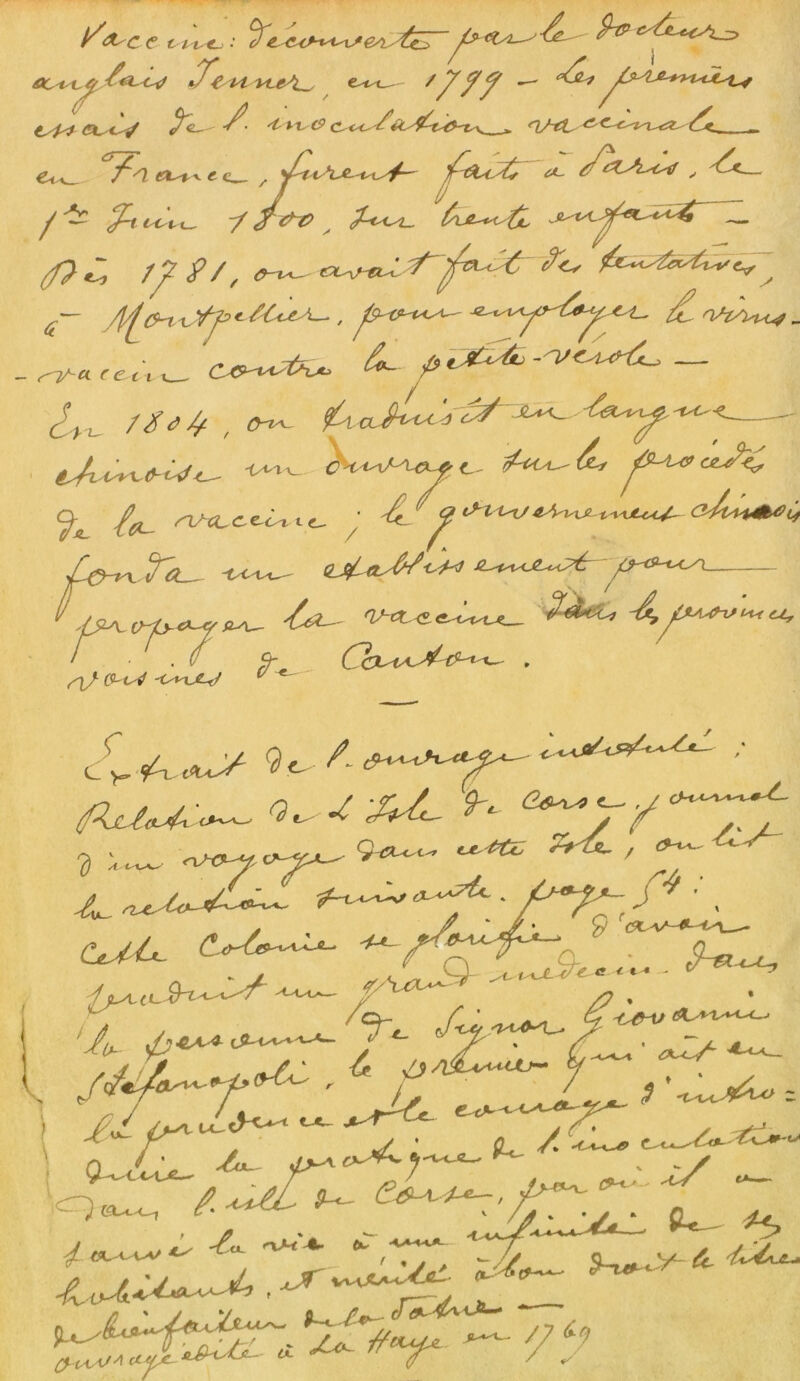 Vaccine : découverte par le docteur
anglais Jenner, en 1799 – Les premiers
essais de l'inoculation vaccinale
en France, furent faits à Paris, le
1er Juin 1800, sur trente enfants –
Dès 1781, on avait fait des tentatives,
à Montpellier, pour employer le virus-
-vaccin contre la petite-vérole –
En 1804, on traduisit en langue
chinoise un ouvrage sur les procédés
de la vaccine ; le gouvernement chinois
fonda un etablissement pour
propager la vaccine dans les provinces
voisines de Canton.
—
Extrait de l'ouvrage intitulé :
Relation de L'Isle de Corse, journal
d'un voyage dans cette Isle, on lit
la relation suivante. page 54 :
Cette Colonie se glorifie d'avoir
produit un grand medecin dans
la personne de Signor Giovanni
Stefanopoli, le premier qui ait eu
la prudence et le courage d'intro=
duire la pratique de l'inoculation
dans l'isle de Corse, par où il a
sauvé la vie à une infinité de ses
habitants, et mérité à bon droit le titre
de bienfaiteur de la Patrie –
ouvrage édité à La Haye en 1769